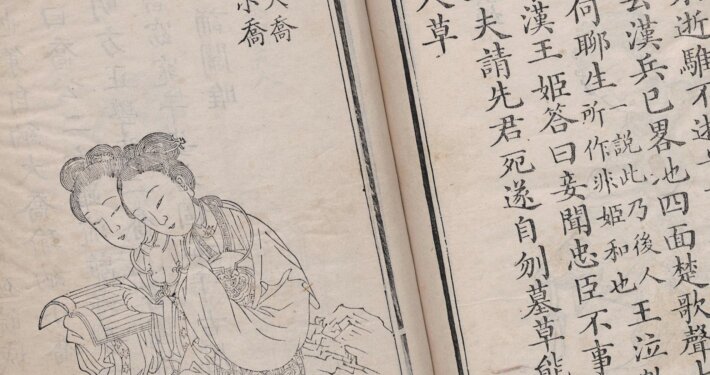 逝騅不逝
漢兵已畧地四面楚歌聲
何聊生
一說此乃後人
所作非姬和也
王泣
漢王姬答曰妾聞忠臣不事
夫請先君死遂自刎墓草能
人草
大喬
小喬